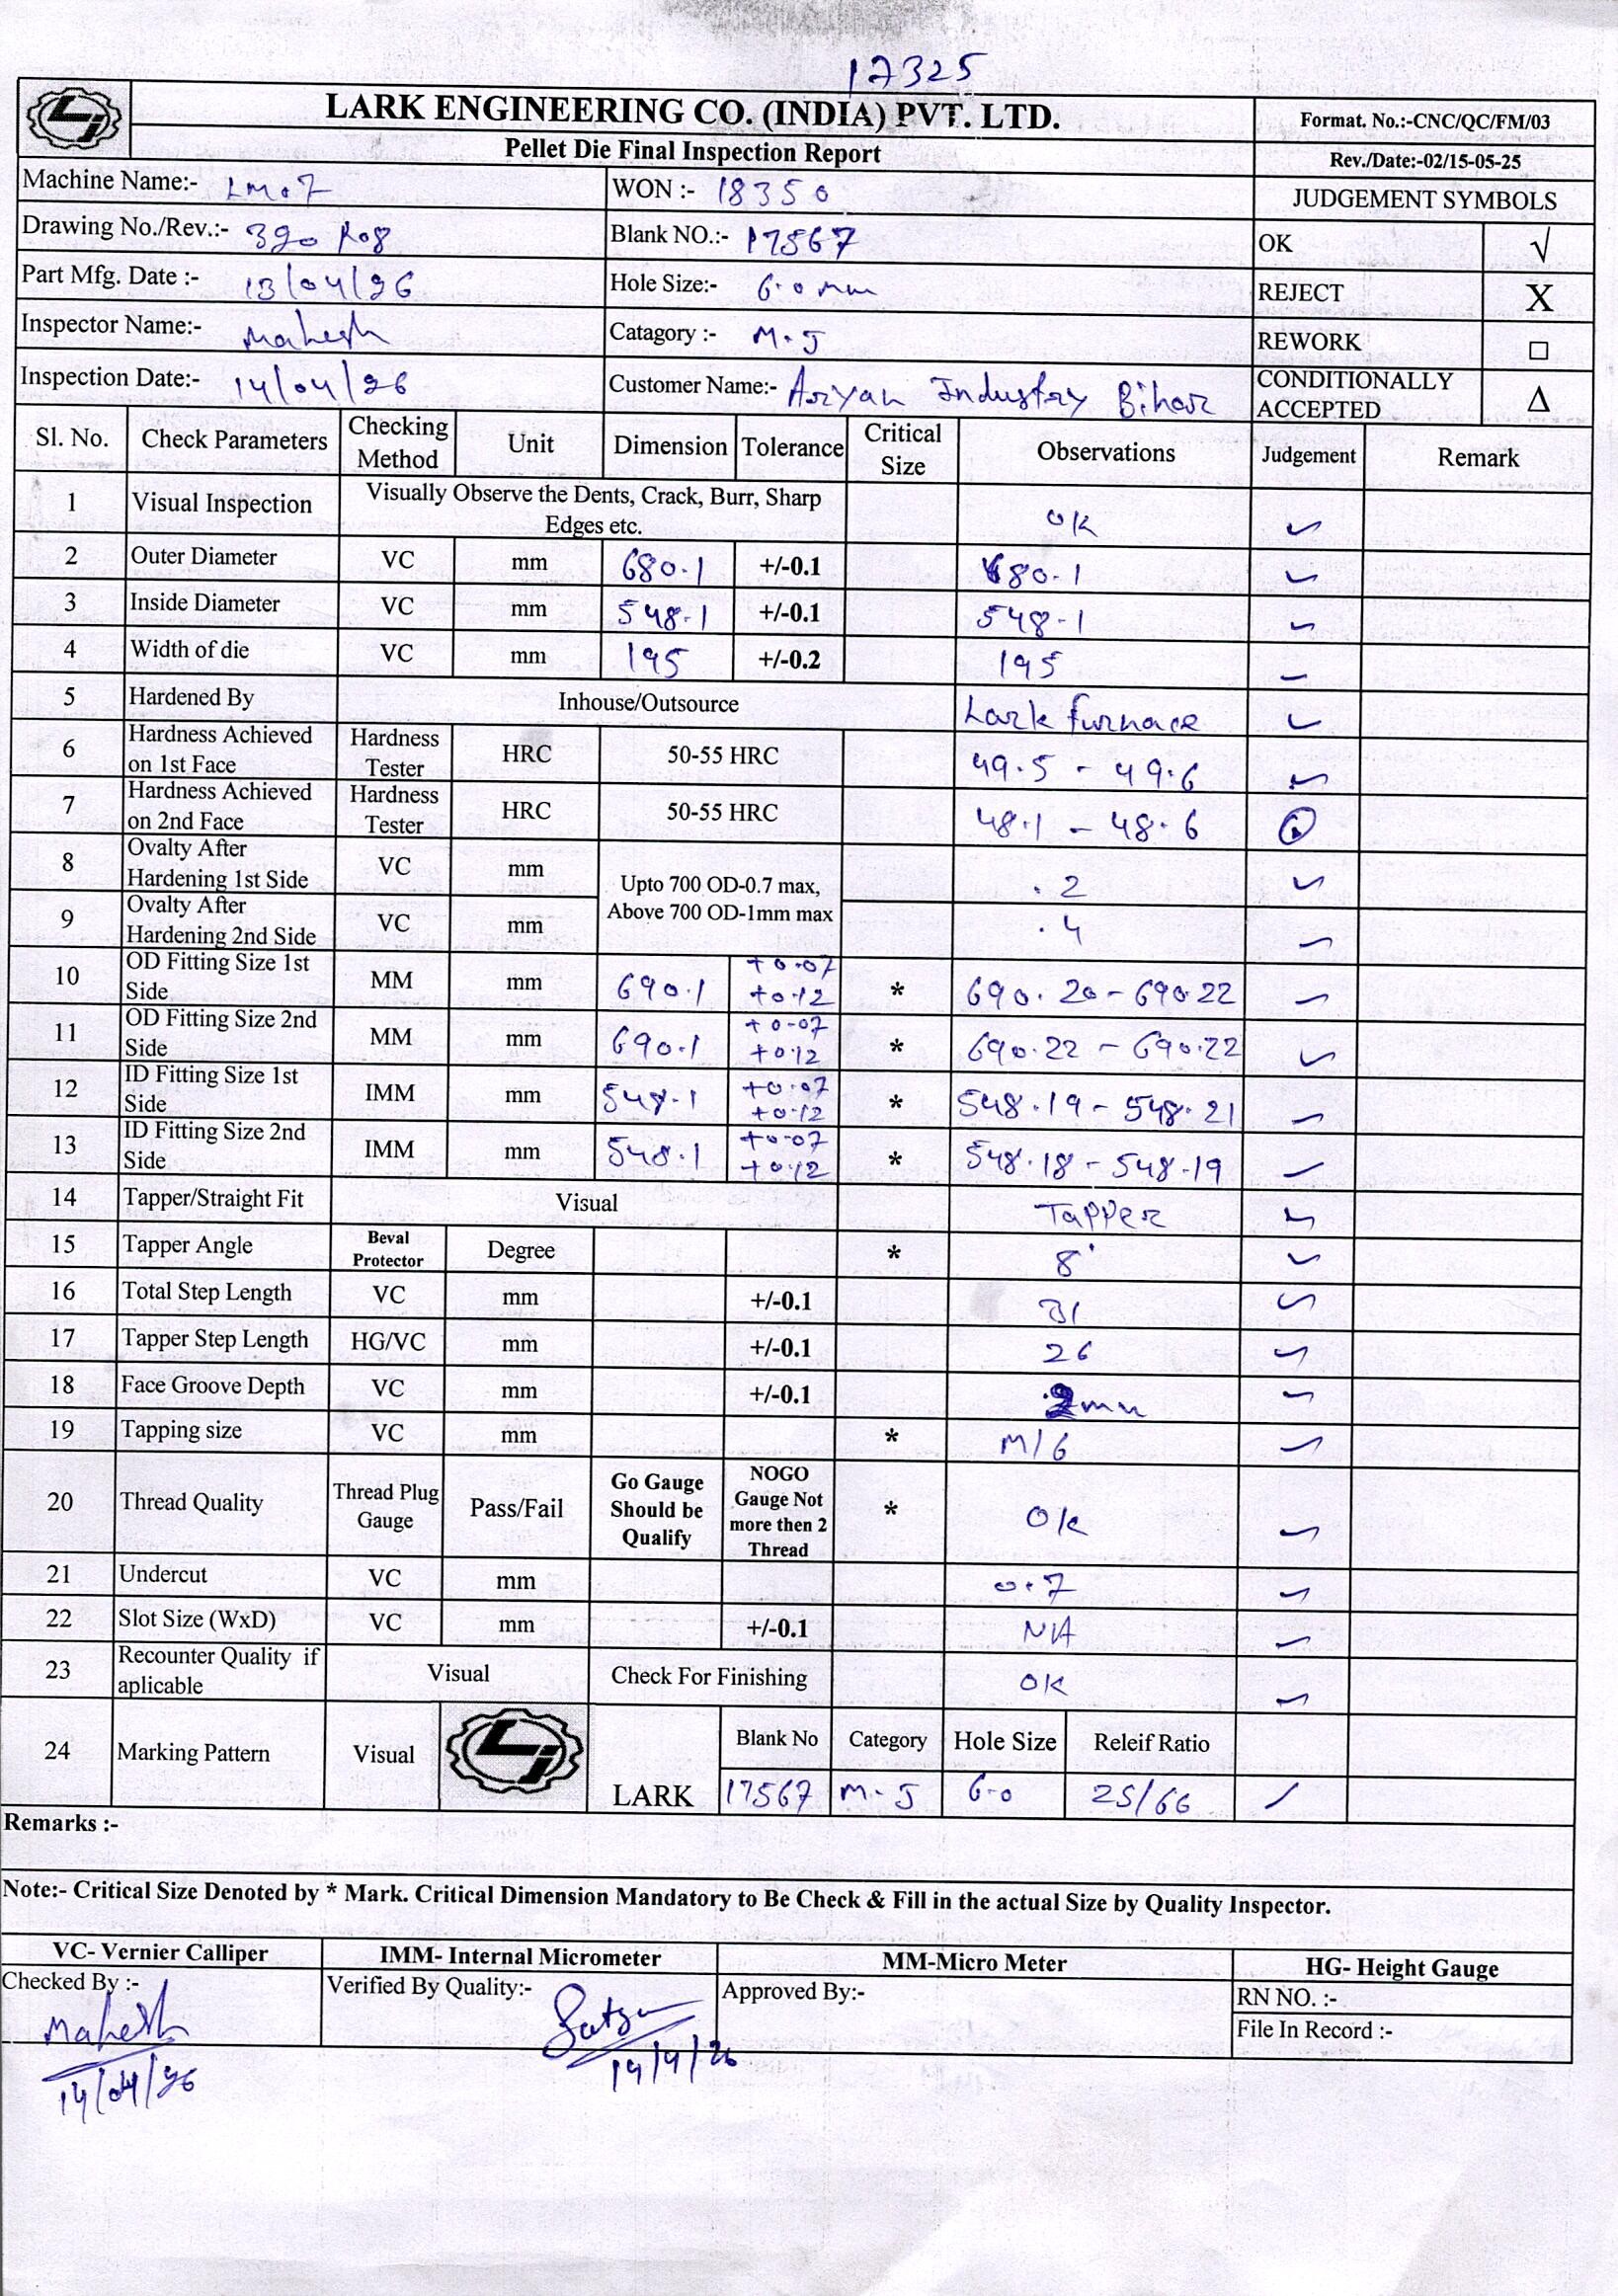 17325
LARK ENGINEERING CO. (INDIA) PVT. LTD.
Format. No.:-CNC/QC/FM/03
Pellet Die Final Inspection Report
Rev./Date:-02/15-05-25
Machine Name:- LM.7 WON :- 18350 JUDGEMENT SYMBOLS
Drawing No./Rev.:- 390 R08 Blank NO.:- 17567 OK √
Part Mfg. Date :- 13/04/26 Hole Size:- 6.0 mm REJECT X
Inspector Name:- Mahesh Catagory :- M.J REWORK □
Inspection Date:- 14/04/26 Customer Name:- Aryan Industry Bihar CONDITIONALLY ACCEPTED Δ
Sl. No. Check Parameters Checking Method Unit Dimension Tolerance Critical Size Observations Judgement Remark
1 Visual Inspection Visually Observe the Dents, Crack, Burr, Sharp Edges etc. OK ✓
2 Outer Diameter VC mm 680.1 +/-0.1 680.1 ✓
3 Inside Diameter VC mm 548.1 +/-0.1 548-1 ✓
4 Width of die VC mm 195 +/-0.2 195 ✓
5 Hardened By Inhouse/Outsource Lark furnace ✓
6 Hardness Achieved on 1st Face Hardness Tester HRC 50-55 HRC 49.5 - 49.6 ✓
7 Hardness Achieved on 2nd Face Hardness Tester HRC 50-55 HRC 48.1 - 48.6
8 Ovalty After Hardening 1st Side VC mm Upto 700 OD-0.7 max, Above 700 OD-1mm max .2 ✓
9 Ovalty After Hardening 2nd Side VC mm .4 ✓
10 OD Fitting Size 1st Side MM mm 690.1 +0.07 +0.12 * 690.20 - 690.22 ✓
11 OD Fitting Size 2nd Side MM mm 690.1 +0.07 +0.12 * 690.22 - 690.22 ✓
12 ID Fitting Size 1st Side IMM mm 548.1 +0.07 +0.12 * 548.19 - 548.21 ✓
13 ID Fitting Size 2nd Side IMM mm 548.1 +0.07 +0.12 * 548.18 - 548.19 ✓
14 Tapper/Straight Fit Visual Tapper ✓
15 Tapper Angle Beval Protector Degree * 8° ✓
16 Total Step Length VC mm +/-0.1 31 ✓
17 Tapper Step Length HG/VC mm +/-0.1 26 ✓
18 Face Groove Depth VC mm +/-0.1 2mm ✓
19 Tapping size VC mm * M16 ✓
20 Thread Quality Thread Plug Gauge Pass/Fail Go Gauge Should be Qualify NOGO Gauge Not more then 2 Thread * OK ✓
21 Undercut VC mm 0.7 ✓
22 Slot Size (WxD) VC mm +/-0.1 N/A ✓
23 Recounter Quality if aplicable Visual Check For Finishing OK ✓
24 Marking Pattern Visual LARK Blank No Category Hole Size Releif Ratio
17567 M.J 6.0 25/66 ✓
Remarks :-
Note:- Critical Size Denoted by * Mark. Critical Dimension Mandatory to Be Check & Fill in the actual Size by Quality Inspector.
VC- Vernier Calliper IMM- Internal Micrometer MM-Micro Meter HG- Height Gauge
Checked By :- Verified By Quality:- Approved By:- RN NO. :-
Mahesh File In Record :-
14/04/26 14/4/26